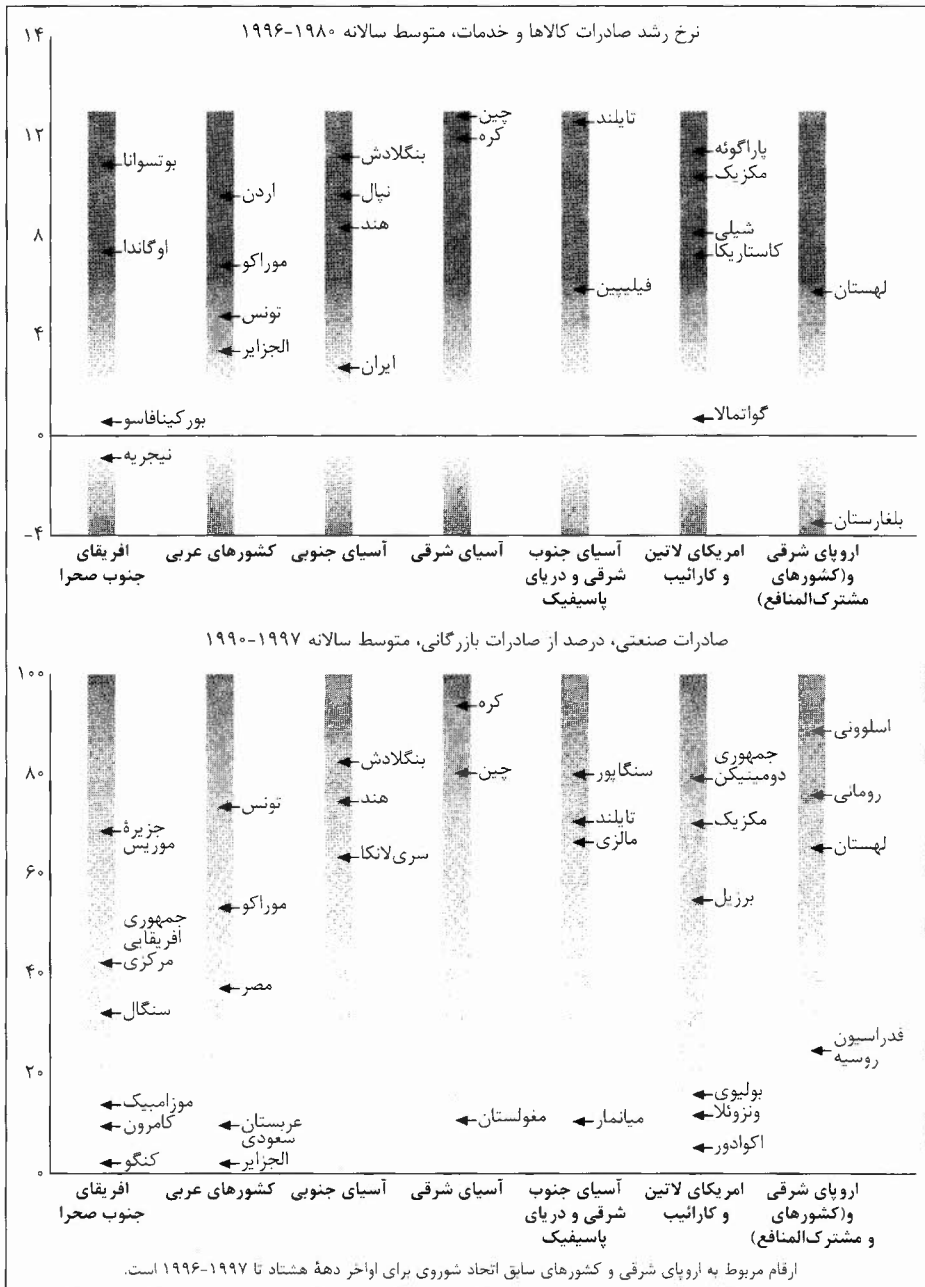 نرخ رشد صادرات کالاها و خدمات، متوسط سالانه ۱۹۸۰-۱۹۹۶
۱۴
۱۲
۸
۴
۰
-۴
بوتسوانا
اوگاندا
بورکینافاسو
نیجریه
اردن
موراکو
تونس
الجزایر
بنگلادش
نپال
هند
ایران
چین
کره
تایلند
فیلیپین
پاراگوئه
مکزیک
شیلی
کاستاریکا
گواتمالا
لهستان
بلغارستان
افریقای
جنوب صحرا
کشورهای عربی
آسیای جنوبی
آسیای شرقی
آسیای جنوب
شرقی و دریای
پاسیفیک
امریکای لاتین
و کارائیب
اروپای شرقی
و(کشورهای
مشترک‌المنافع)
صادرات صنعتی، درصد از صادرات بازرگانی، متوسط سالانه ۱۹۹۷-۱۹۹۰
۱۰۰
۸۰
۶۰
۴۰
۲۰
۰
جزیرهٔ
موریس
جمهوری
افریقایی
مرکزی
سنگال
موزامبیک
کامرون
کنگو
تونس
موراکو
مصر
عربستان
سعودی
الجزایر
بنگلادش
هند
سری‌لانکا
کره
چین
مغولستان
سنگاپور
تایلند
مالزی
میانمار
جمهوری
دومینیکن
مکزیک
برزیل
بولیوی
ونزوئلا
اکوادور
اسلوونی
رومانی
لهستان
فدراسیون
روسیه
افریقای
جنوب صحرا
کشورهای عربی
آسیای جنوبی
آسیای شرقی
آسیای جنوب
شرقی و دریای
پاسیفیک
امریکای لاتین
و کارائیب
اروپای شرقی
و(کشورهای
و مشترک‌المنافع)
ارقام مربوط به اروپای شرقی و کشورهای سابق اتحاد شوروی برای اواخر دههٔ هشتاد تا ۱۹۹۷-۱۹۹۶ است.